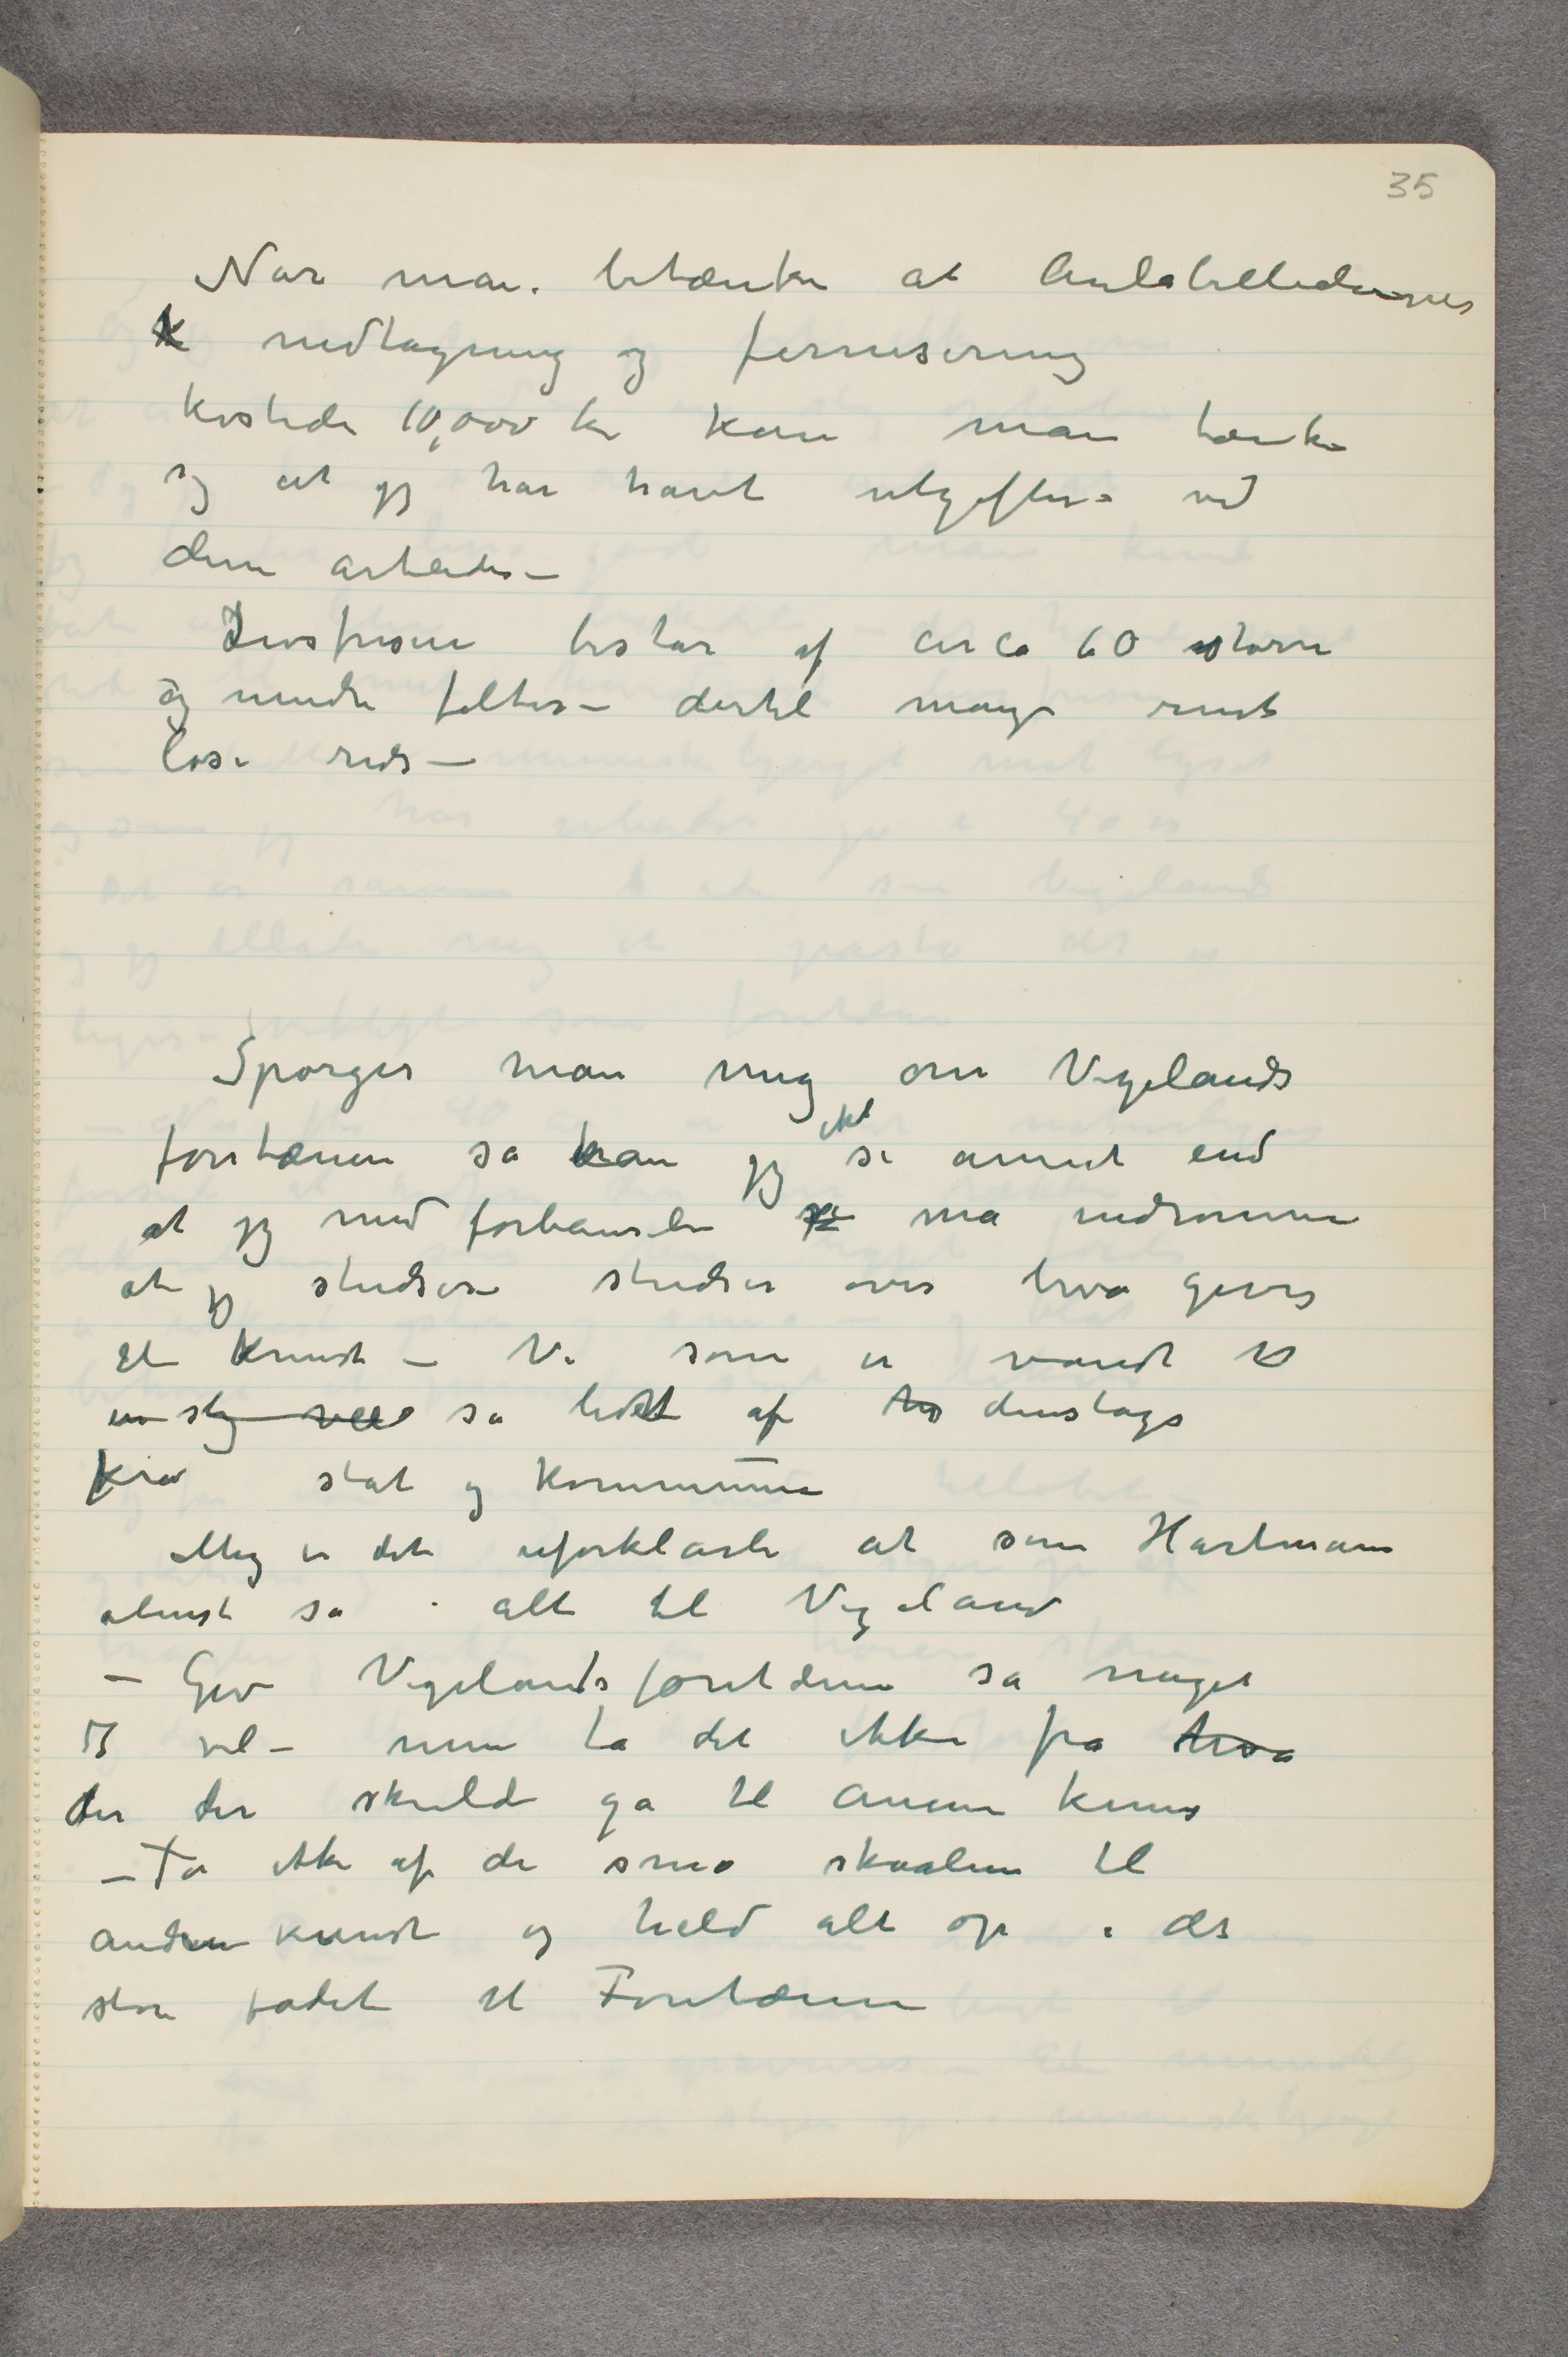 35
Når man betænker at Aulabilledernes
nedtagning og fernisering
kostede 10,000 kr kan man tænke
sig at jeg har havt utgifter ved
dem arbeider –
Livsfrisen består af circa 60 større
og mindre felter – dertil mange rent
løse rids –
Spørger man mig om Vigelands
fontænen så kan jeg ikke si annet end
at jeg med forbauselse må indrømme
at jeg studser studser over hva gives
til kunst – Vi som er vandt til
en slig så lidet af denslags
fra stat og kommune
Mig er det uforklarli at som Hartmann
alene så alt til Vigeland
– Giv Vigelandsfontænen så meget
I vil – men ta det ikke fra hva
der der skulde gå til annen kunst
– Ta ikke af de små skaalene til
anden kunst og held alt op i det
store fadet til Fontænen